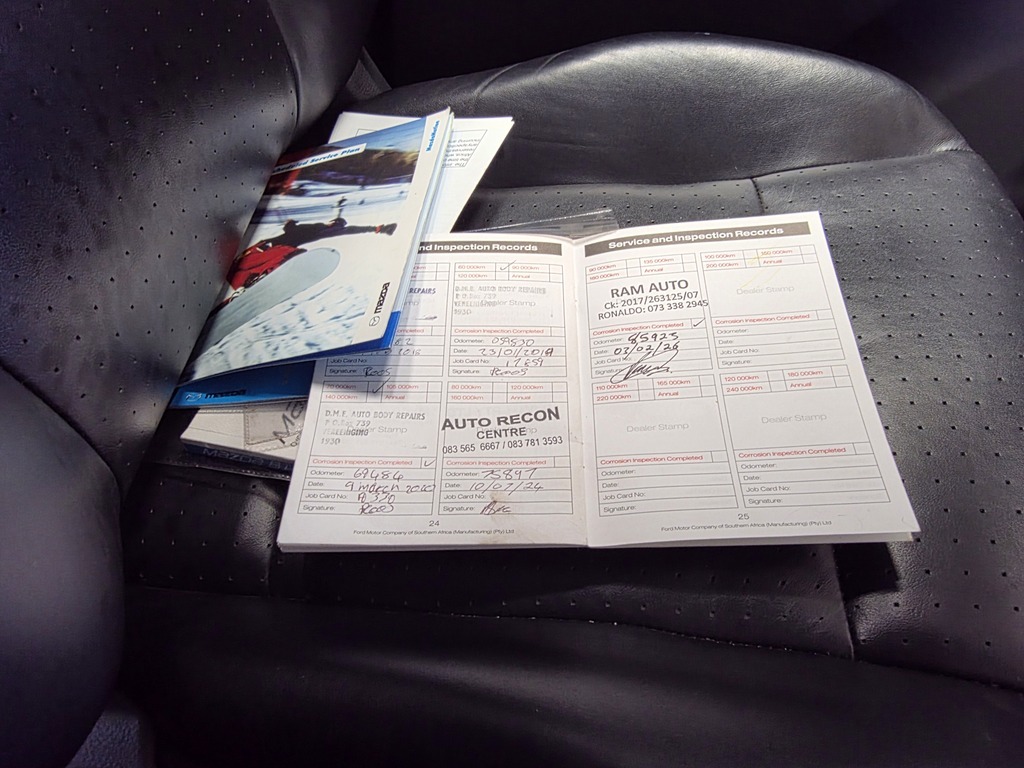 Service Plan
MazdaMotion
mazda
mazda
and Inspection Records
60 000km
90 000km
120 000km
Annual
REPAIRS
D.M.E. AUTO BODY REPAIRS
P.O. Box 739
VEREENIGING
1930
Dealer Stamp
Corrosion Inspection Completed
Odometer: 059530
Date: 23/01/2019
Job Card No: 17659
Signature: Roos
Signature: Roos
70 000km
105 000km
140 000km
Annual
D.M.E. AUTO BODY REPAIRS
P.O. Box 739
VEREENIGING
1930
Corrosion Inspection Completed
Odometer: 69484
Date: 9 march 2020
Job Card No:
Signature: Roos
80 000km
120 000km
160 000km
Annual
AUTO RECON
CENTRE
083 565 6667 / 083 781 3593
Corrosion Inspection Completed
Odometer: 75897
Date: 10/07/24
Job Card No:
Signature:
24
Ford Motor Company of Southern Africa (Manufacturing) (Pty) Ltd
Service and Inspection Records
90 000km
135 000km
180 000km
Annual
RAM AUTO
Ck: 2017/263125/07
RONALDO: 073 338 2945
Corrosion Inspection Completed
Odometer: 85923
Date: 02/02/26
Job Card No:
Signature:
100 000km
150 000km
200 000km
Annual
Dealer Stamp
Corrosion Inspection Completed
Odometer:
Date:
Job Card No:
Signature:
110 000km
165 000km
220 000km
Annual
Dealer Stamp
Corrosion Inspection Completed
Odometer:
Date:
Job Card No:
Signature:
120 000km
180 000km
240 000km
Annual
Dealer Stamp
Corrosion Inspection Completed
Odometer:
Date:
Job Card No:
Signature:
25
Ford Motor Company of Southern Africa (Manufacturing) (Pty) Ltd